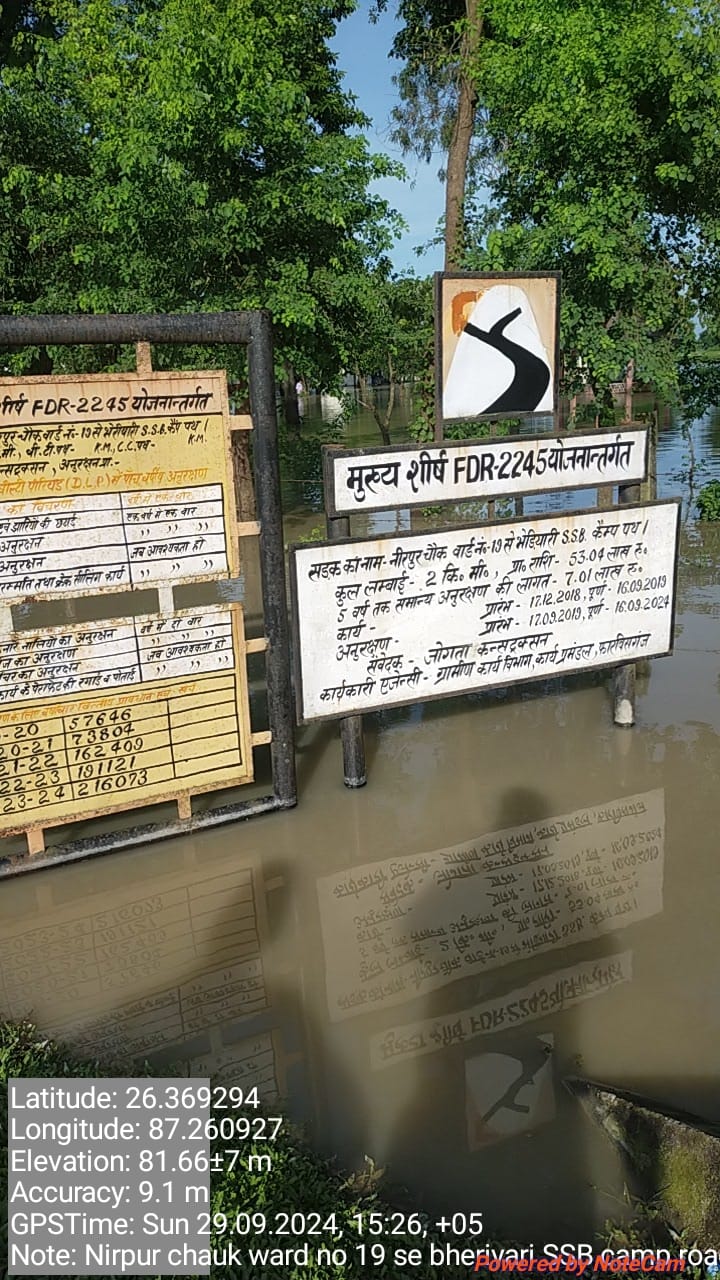 शीर्ष FDR-2245 योजनान्तर्गत
पुर-चौक वार्ड नं-19 से भेरीयारी S.S.B. कैंप पथ।
मी., बी.टी.पथ- K.M., C.C.पथ- K.M.
कन्सट्रक्सन, अनुरक्षण प्रा:-
(D.L.P) में पंच वर्षीय अनुरक्षण
विवरण
एक वर्ष में एक बार
अनुरक्षण " " "
अनुरक्षण जब आवश्यकता हो
मरम्मति तथा क्रैक सीलिंग कार्य " " "
नालियों का अनुरक्षण वर्ष में दो बार
का अनुरक्षण " " "
का अनुरक्षण जब आवश्यकता हो
" " "
-20 57646
20-21 73804
21-22 162409
22-23 191121
23-24 216073
मुख्य शीर्ष FDR-2245 योजनान्तर्गत
सड़क का नाम- नीरपुर चौक वार्ड नं॰-19 से भेड़ियारी S.S.B. कैम्प पथ।
कुल लम्बाई- 2 कि॰ मी॰, प्रा॰ राशि- 53.04 लाख रु॰
5 वर्ष तक सामान्य अनुरक्षण की लागत- 7.01 लाख रु॰
कार्य- प्रारंभ- 17.12.2018, पूर्ण- 16.09.2019
अनुरक्षण- प्रारंभ- 17.09.2019, पूर्ण- 16.09.2024
संवेदक- जोगता कन्सट्रक्सन
कार्यकारी एजेन्सी- ग्रामीण कार्य विभाग, कार्य प्रमंडल, फारबिसगंज
Latitude: 26.369294
Longitude: 87.260927
Elevation: 81.66±7 m
Accuracy: 9.1 m
GPSTime: Sun 29.09.2024, 15:26, +05
Note: Nirpur chauk ward no 19 se bheriyari SSB camp roa
Powered by NoteCam